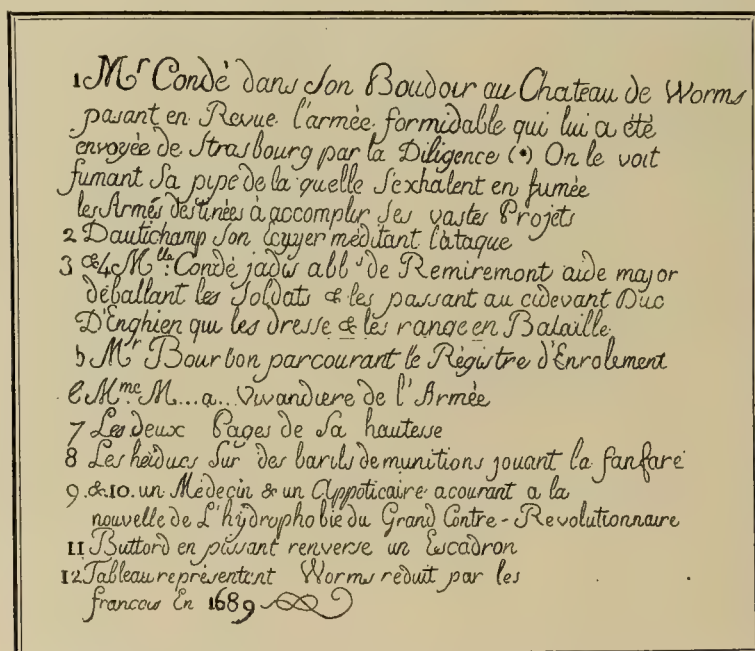 1 Mr Condé dans son Boudoir au Chateau de Worms
pasant en Revue l'armée formidable qui lui a été
envoyée de Strasbourg par la Diligence (•) On le voit
fumant sa pipe de la quelle s'exhalent en fumée
les Armés destinées à accomplir ses vastes Projets
2 Dautichamp son Ecuyer méditant l'ataque
3 &4 Mlle: Condé jadis abbs de Remiremont aide major
déballant les Soldats & les passant au cidevant Duc
D'Enghien qui les dresse & les range en Bataille
5 Mr Bourbon parcourant le Régistre d'Enrolement
6 Mme M...a... Vivandiere de l'Armée
7 Les deux Pages de Sa hautesse
8 Les heiducs Sur des barils de munitions jouant la fanfare
9.&.10. un Médecin & un Appoticaire acourant a la
nouvelle de L'hydrophobie du Grand Contre-Revolutionnaire
11 Buttord en pissant renverse un Escadron
12 Tableau représentent Worms reduit par les
francois En 1689